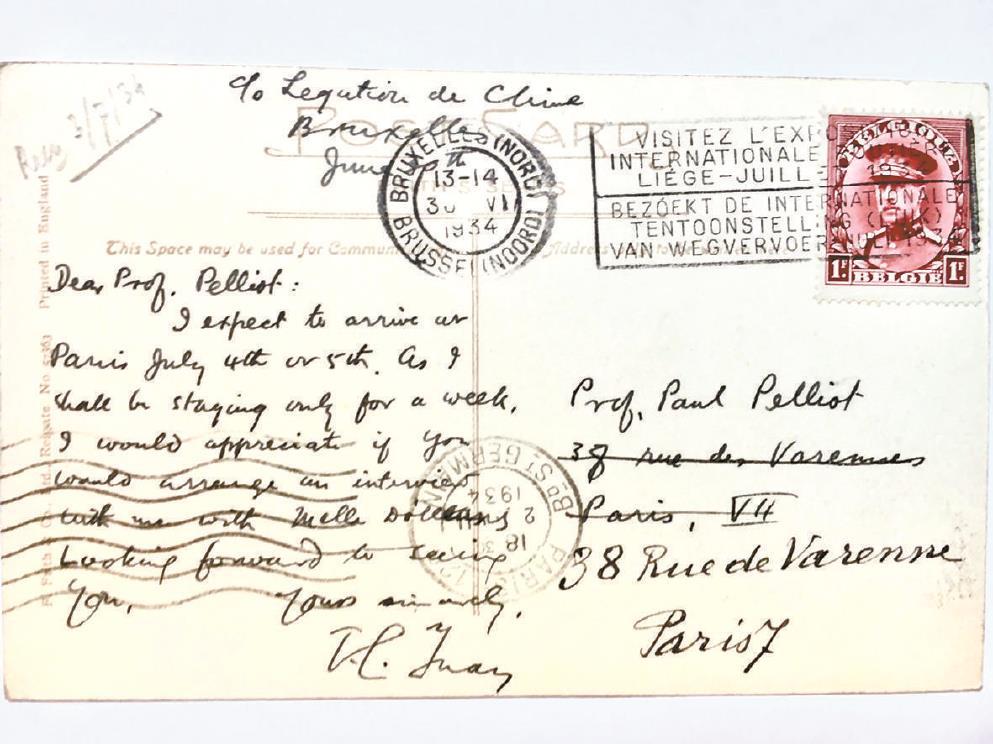 c/o Legation de Chine
Bruxelles
June
Recd 3/7/34
POST CARD
THIS SPACE
BRUXELLES (NORD)
13-14
30 VI
1934
BRUSSEL (NOORD)
VISITEZ L'EXPO
INTERNATIONALE
LIÈGE-JUILL
BEZOEKT DE INTERNATIONALE
TENTOONSTELLING (LUIK)
VAN WEGVERVOER JULI 1934
1F BELGIE 1F
This Space may be used for Commun
Address
Printed in England
Reigate No
Dear Prof. Pelliot:
I expect to arrive at
Paris July 4th or 5th. As I
shall be staying only for a week,
I would appreciate if you
would arrange an interview
with me with Melle
Looking forward to seeing
you,
Yours sincerely,
Prof. Paul Pelliot
38 rue des Varennes
Paris, VII
38 Rue de Varenne
Paris 7
Bd St GERMAIN
2
1934
18
PARIS